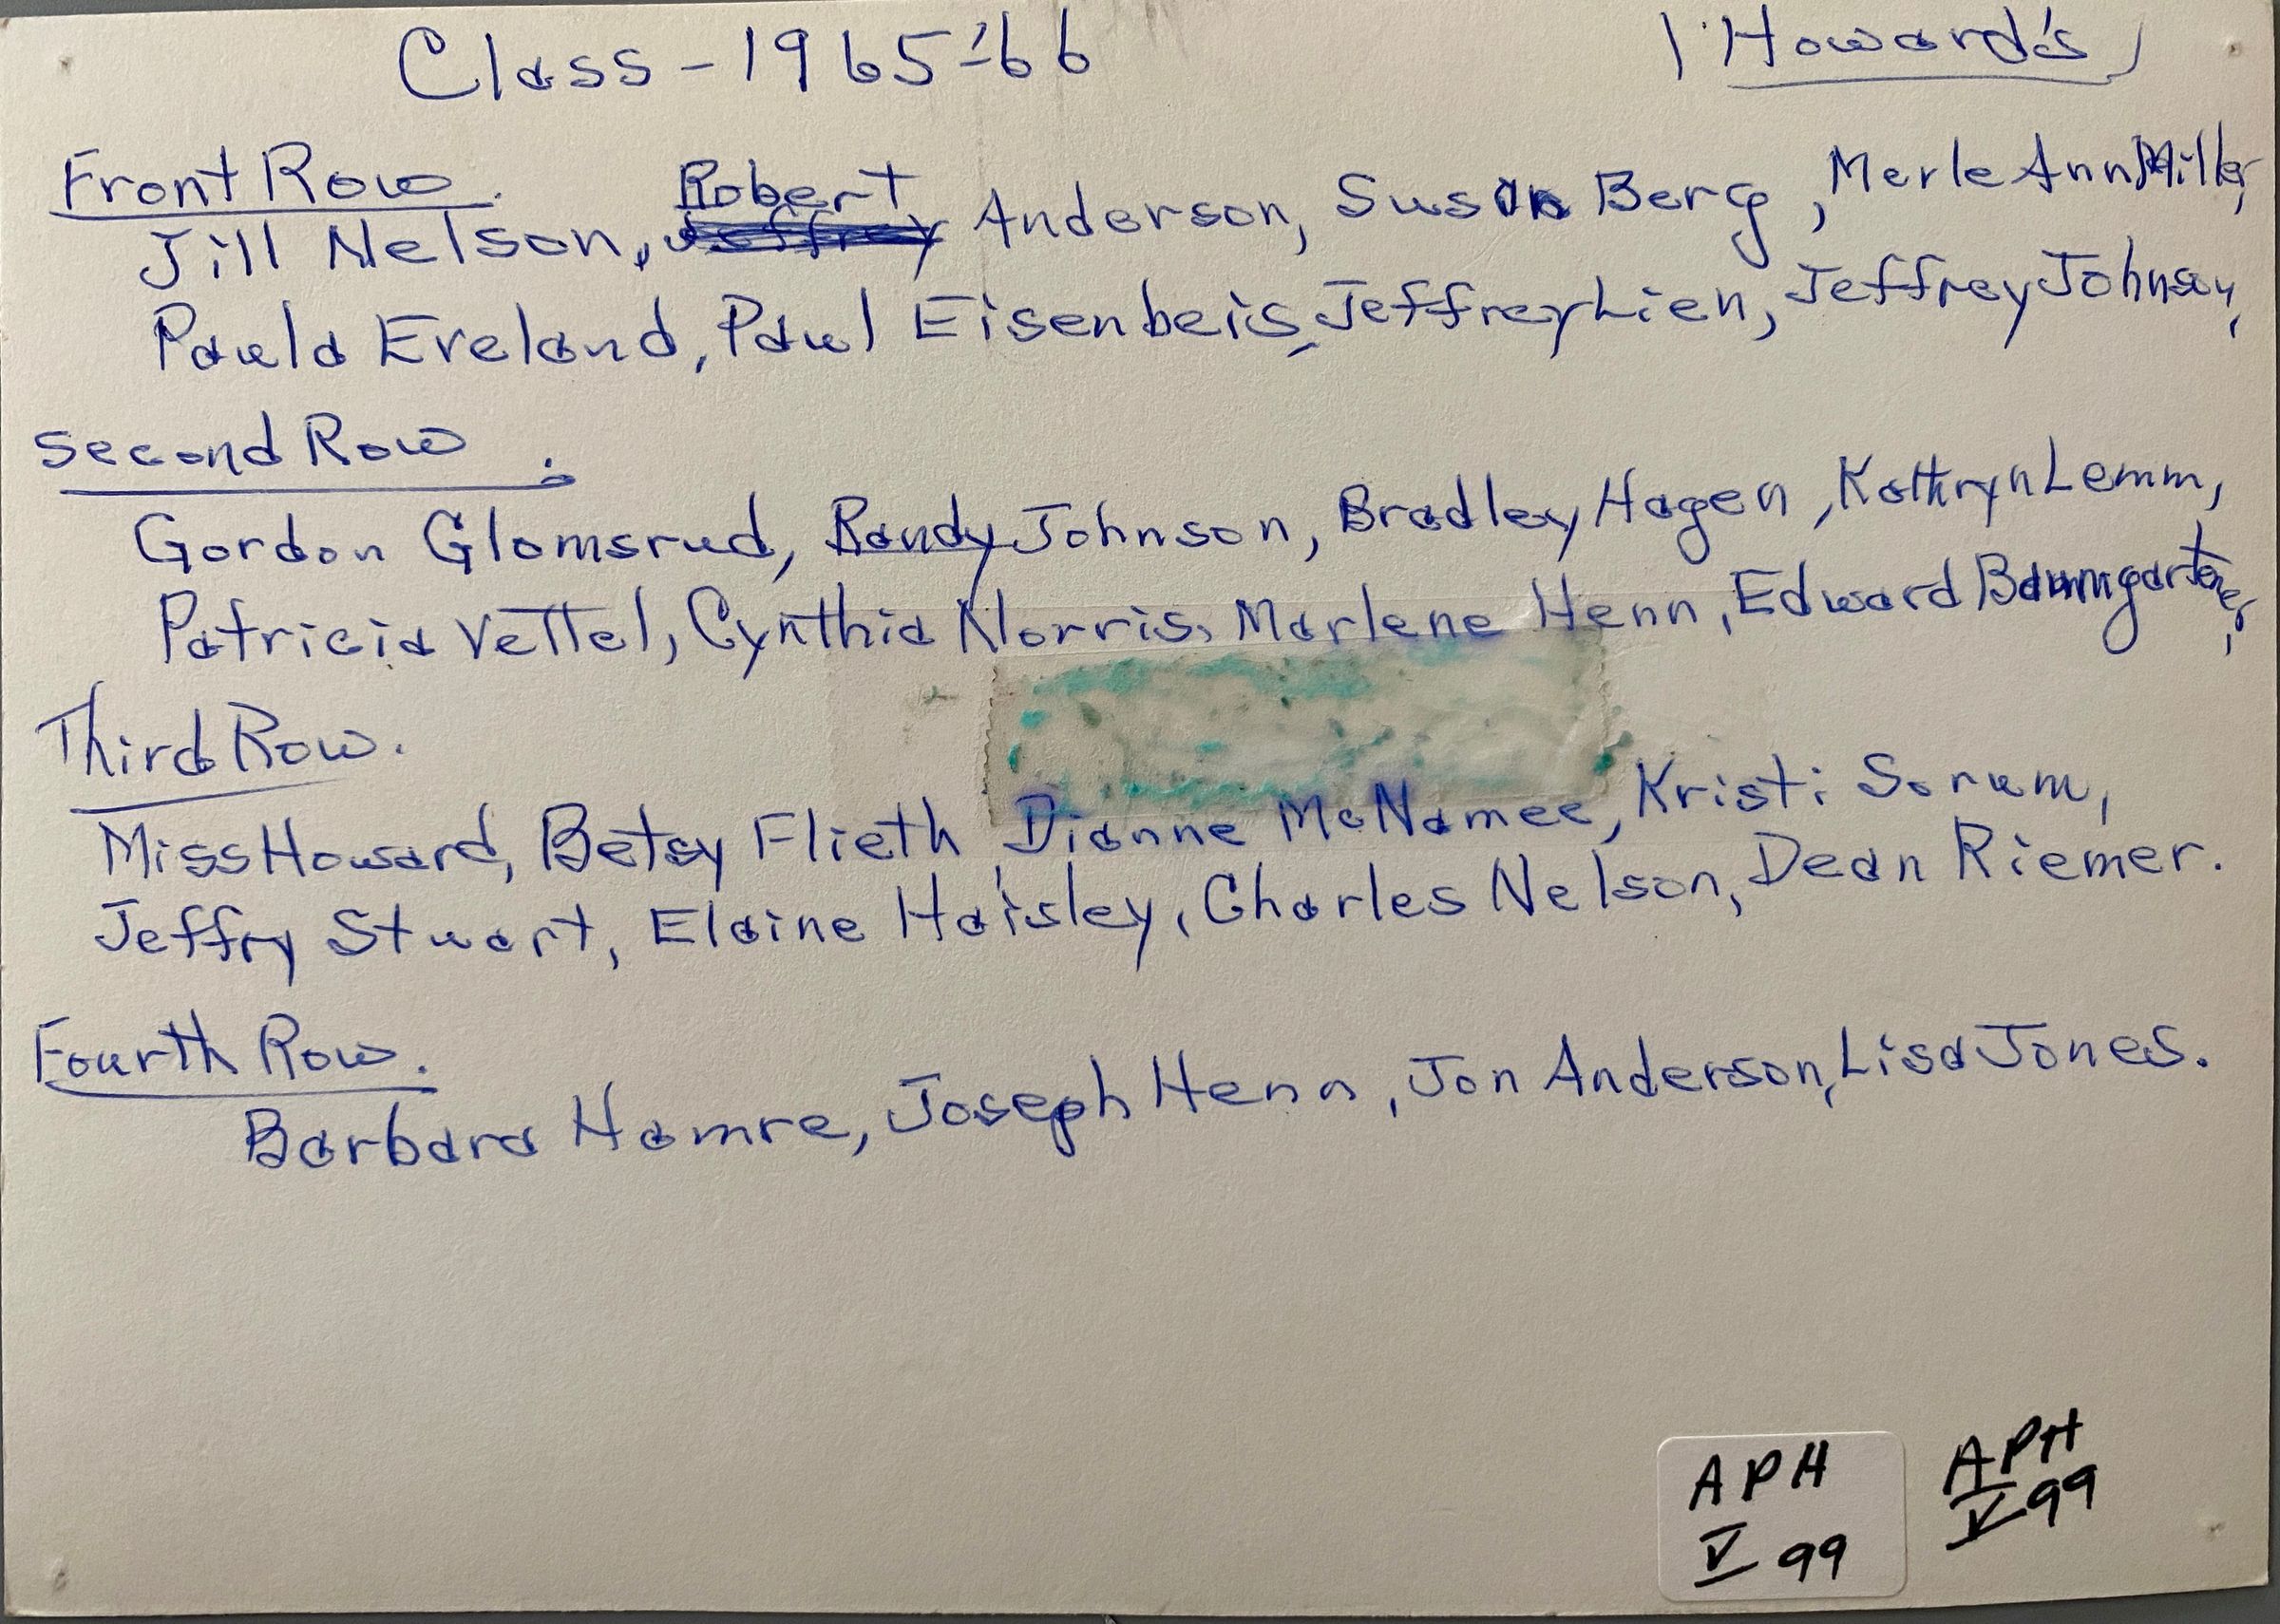 Class - 1965-'66 (Howard's)
Front Row.
Robert
Jill Nelson, Jeffrey Anderson, Susan Berg, Merle Ann Miller,
Paula Ereland, Paul Eisenbeis, Jeffrey Lien, Jeffrey Johnson,
Second Row:
Gordon Glomsrud, Randy Johnson, Bradley Hagen, Kathryn Lemm,
Patricia Vettel, Cynthia Norris, Marlene Henn, Edward Baumgartner,
Third Row.
Miss Howard, Betsy Flieth, Dianne McNamee, Kristi Sorum,
Jeffry Stuart, Elaine Haisley, Charles Nelson, Dean Riemer.
Fourth Row.
Barbara Hamre, Joseph Henn, Jon Anderson, Lisa Jones.
APH
V 99
APH
V 99